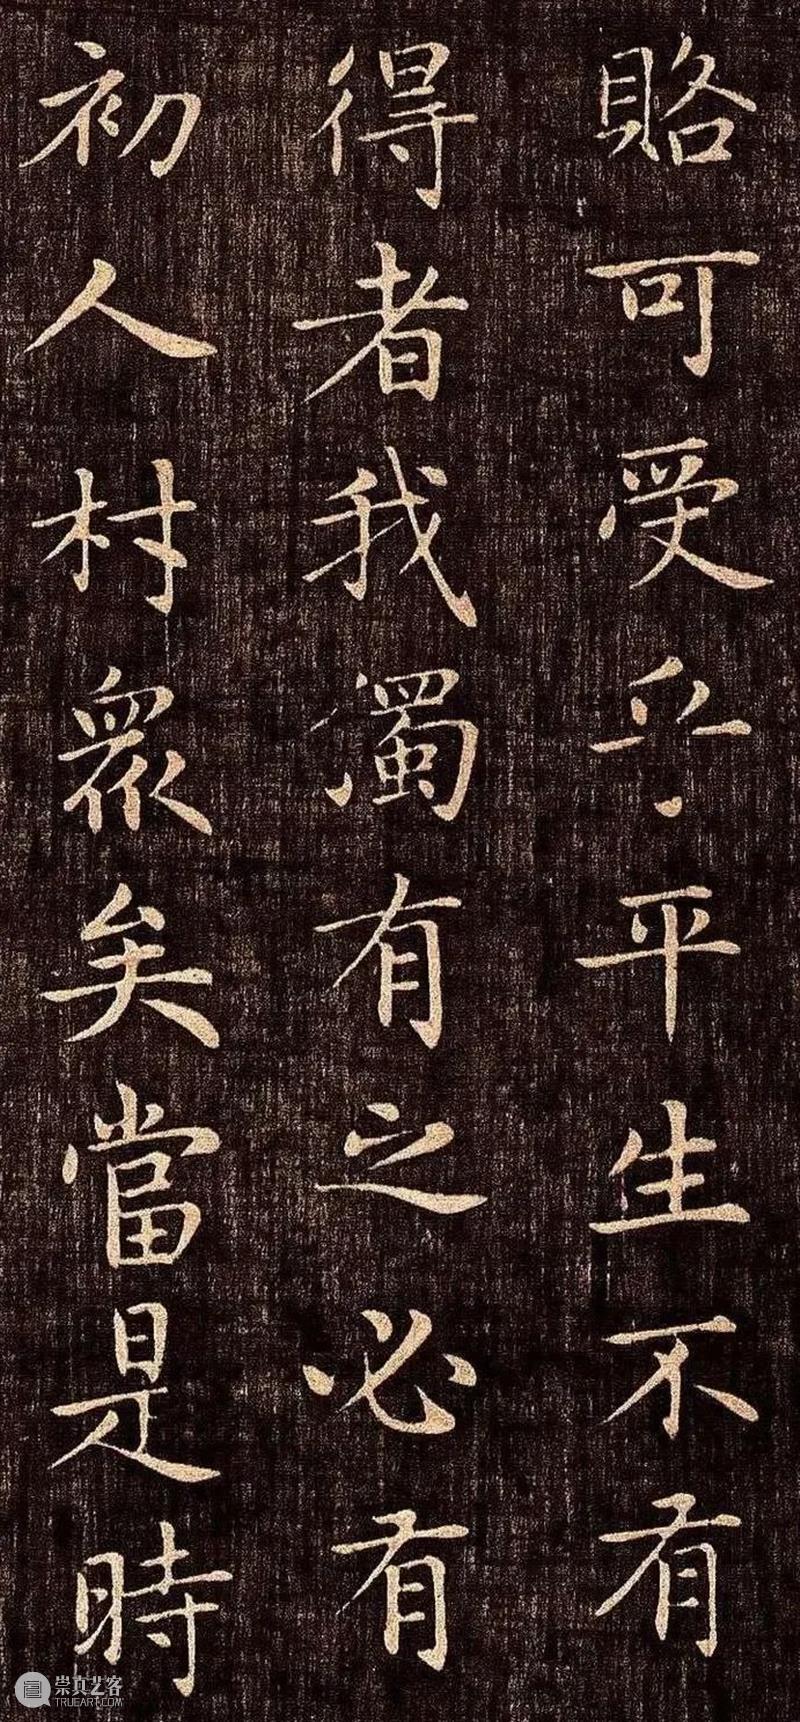 賂可受乎平生不有
得者我獨有之必有
初人村眾矣當是時
崇真艺客
TRUEART.COM